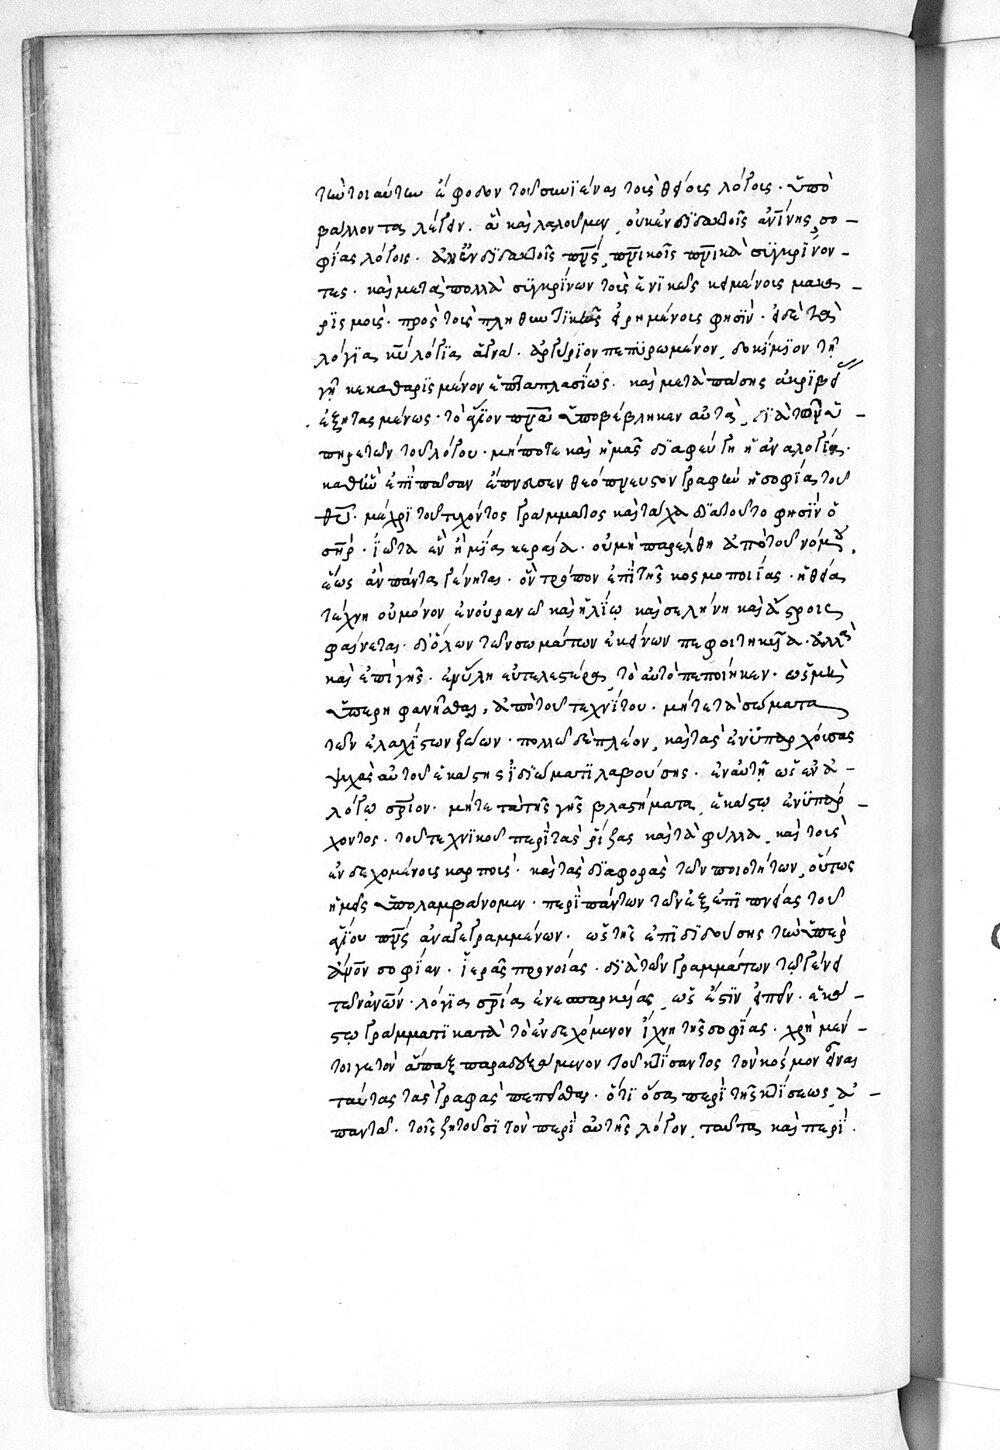 τῶν τοιούτων ἔφοδον τοῦ συνϊέναι τοῖς θείοις λόγοις. ὑπο
βάλλοντας λέγειν. ἃ καὶ λαλοῦμεν, οὐκ ἐν διδακτοῖς ἀν̅ίνης σο-
φίας λόγοις. ἀλλ' ἐν διδακτοῖς πν̅ς, πν̅ικοῖς πν̅ικὰ συγκρίνον-
τες. καὶ μετὰ πολλὰ συγκρίνων τοῖς ἑνικῶς κειμένοις μακα-
ρισμοῖς. πρὸς τοῖς πληθυντικῶς εἰρημένοις φησὶν. εἰ δὲ τὰ
λόγια κ̅υ λόγια ἁγνὰ. ἀργύριον πεπυρωμένον, δοκίμιον τῇ
γῇ κεκαθαρισμένον ἑπταπλασίως. καὶ μετὰ πάσης ἀκριβεί
ἐξητασμένως. τὸ ἅγιον πν̅α ὑποβέβληκεν αὐτὰ, διὰ τῶν ὑ-
πηρετῶν τοῦ λόγου. μήποτε καὶ ἡμᾶς διαφεύγη ἡ ἀναλογία.
καθ' ἣν ἐπὶ πᾶσαν ἔπνευσεν θεόπνευστον γραφὴν ἡ σοφία τοῦ
θ̅υ. μέχρι τοῦ τυχόντος γράμματος καὶ τάχα διὰ τοῦτο φησὶν ὁ
σ̅ηρ. ἰῶτα ἓν ἢ μία κεραία. οὐ μὴ παρέλθη ἀπὸ τοῦ νόμου,
ἕως ἂν πάντα γένηται. ὃν τρόπον ἐπὶ τῆς κοσμοποιΐας. ἡ θεία
τέχνη οὐ μόνον ἐν οὐρανῶ καὶ ἡλίω καὶ σελήνη καὶ ἄστροις
φαίνεται. δι' ὅλων τῶν σωμάτων ἐκείνων πεφοιτηκυῖα. ἀλλὰ
καὶ ἐπὶ γῆς. ἐν ὕλη εὐτελεστέρα, τὸ αὐτὸ πεποίηκεν. ὡς μὴ
ὑπερηφανῆσθαι, ἀπὸ τοῦ τεχνίτου. μήτε τὰ σώματα
τῶν ἐλαχίστων ζώων. πολλῶ δὲ πλέον, καὶ τὰς ἐνϋπαρχούσας
ψυχὰς αὐτοῦ ἑκάστης ἰδίωμά τι λαβούσης. ἐν αὐτῇ ὡς ἐν ἀ-
λόγω σ̅ριον. μήτε τὰ τῆς γῆς βλαστήματα, ἑκάστω ἐνϋπάρ-
χοντος. τοῦ τεχνικοῦ περὶ τὰς ῥίζας καὶ τὰ φύλλα, καὶ τοῖς
ἐνδεχομένοις καρποῖς. καὶ τὰς διαφορὰς τῶν ποιοτήτων, οὕτως
ἡμεῖς ὑπολαμβάνομεν. περὶ πάντων τῶν ἐξ ἐπιπνοίας τοῦ
ἁγίου πν̅ς ἀναγεγραμμένων. ὡς τῆς ἐπιδιδούσης τὴν ὑπὲρ
ἄν̅ον σοφίαν. ἱερᾶς προνοίας. διὰ τῶν γραμμάτων τῷ γένει
τῶν ἀν̅ων. λόγια σ̅ρία ἐνεσπαρκείας, ὡς ἔστιν εἰπεῖν. ἑκά-
στω γράμματι κατὰ τὸ ἐνδεχόμενον ἴχνη τῆς σοφίας. χρὴ μέν-
τοι γε τὸν ἅπαξ παραδεξάμενον τοῦ κτίσαντος τὸν κόσμον εἶναι
ταύτας τὰς γραφὰς πεπεῖσθαι. ὅτι ὅσα περὶ τῆς κτίσεως ἀ-
παντᾶ. τοῖς ζητοῦσι τὸν περὶ αὐτῆς λόγον, ταῦτα καὶ περὶ.